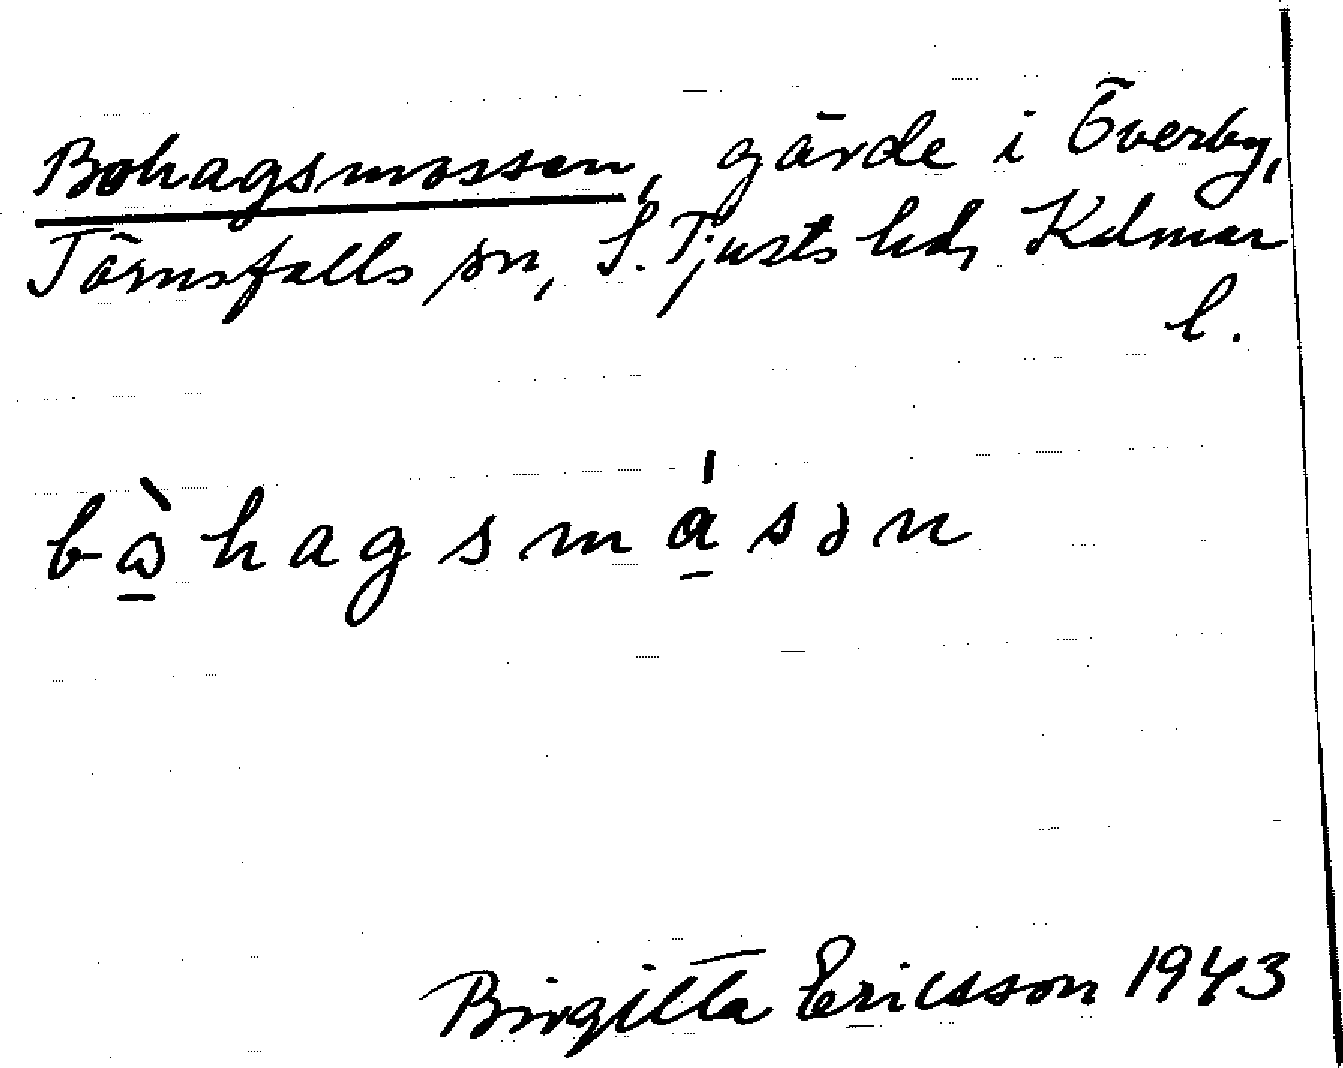 Bohagsmossen, gärde i Överby,
Törnsfalls sn, S. Tjusts hd, Kalmar
l.
bɷ̀hagsmásən
Birgitta Ericsson 1943